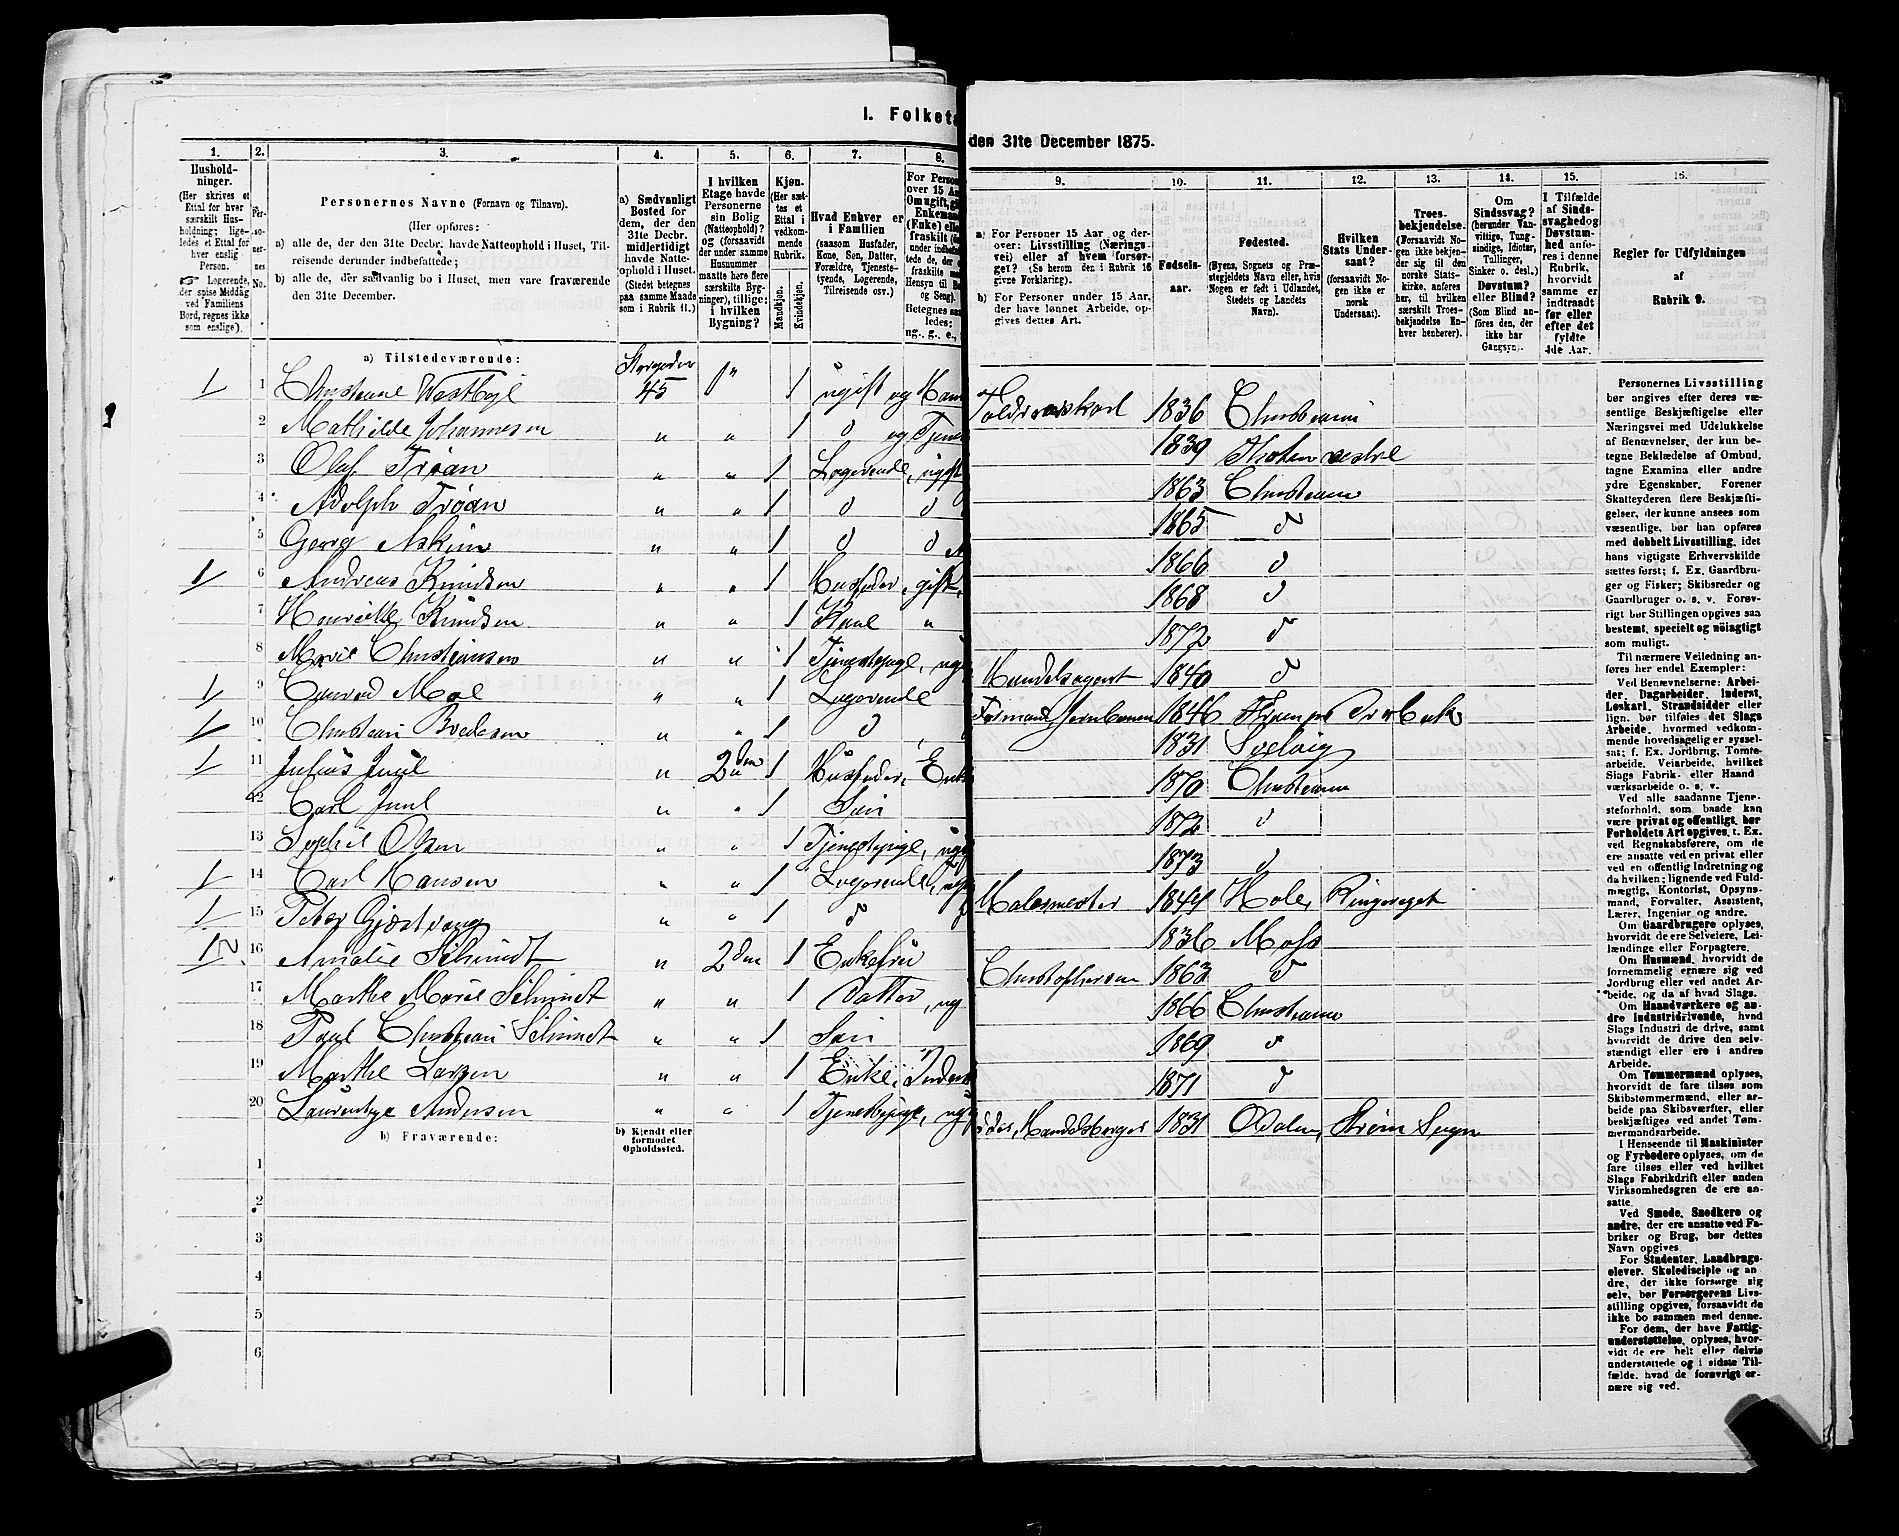 I. Folketæ
1.
2.
3.
4.
5.
6.
7.
8.
Hushold-
ninger.
(Her skrives et
Ettal for hver
særskilt Hus-
holdning; lige-
ledes et Ettal for
hver enslig
Person.
Logerende,
der spise Middag
ved Familiens
Bord, regnes ikke
som enslige).
Personernes Navne (Fornavn og Tilnavn).
(Her opføres:
a) alle de, der den 31te Decbr. havde Natteophold i Huset, Til-
reisende derunder indbefattede;
b) alle de, der sædvanlig bo i Huset, men vare fraværende
den 31te December.
a) Sædvanligt
Bosted for
dem, der den
31te Decbr.
midlertidigt
havde Natte-
ophold i Huset.
(Stedet betegnes
paa samme Maade
som i Rubrik 11.)
I hvilken
Etage havde
Personerne
sin Bolig
(Natteophold)?
og (forsaavidt
der under samme
Husnummer
maatte høre flere
særskilte Byg-
ninger), tillige:
i hvilken
Bygning?
Kjøn.
(Her sæt-
tes et
Ettal i
vedkom-
mende
Rubrik.
Mandkjøn.
Kvindekjøn.
Hvad Enhver er
i Familien
(saasom Husfader,
Kone, Søn, Datter,
Forældre, Tjeneste-
tyende, Logerende,
Tilreisende osv.)
a) Tilstedeværende:
1 1 Christiane Westbye 45 1 ugift og
2 Mathilde Johannesen " " 1 d og
3 Olaf Trøan " " 1 Logerende, ugift
4 Adolph Trøan " " 1 d d
5 Georg Askim " " 1 d d
1 6 Andreas Knudsen " " 1 Husfader, gift
7 Henriette Knudsen " " 1 Kone "
8 Marie Christiansen " " 1 Tjenestepige, ug
1 9 Conrad Moe " " 1 Logerende
1 10 Christian Bredesen " " 1 d
1 11 Julius Juul " 2den 1 Husfader, Enke
12 Carl Juul " " 1 Søn
13 Sophie Olsen " " 1 Tjenestepige, ug
1 14 Carl Hansen " " 1 Logerende, ug
1 15 Peter Gjestvang " " 1 d
1 16 Amalie Schmidt " 2den 1 Enkefru
17 Marthe Marie Schmidt " " 1 Datter, ug
18 Paul Christian Schmidt " " 1 Søn
19 Marthe Larsen " " 1 Enke,
20 Laurentze Andersen " " 1 Tjenestepige, ug
b) Fraværende:
b) Kjendt eller
formodet
Opholdssted.
1
2
3
4
5
6
den 31te December 1875.
9.
10.
11.
12.
13.
14.
15.
16.
a) For Personer 15 Aar og der-
over: Livsstilling (Nærings-
vei) eller af hvem forsør-
get? (Se herom den i Rubrik 16
givne Forklaring).
b) For Personer under 15 Aar,
der have lønnet Arbeide, op-
gives dettes Art.
Fødsels-
aar.
Fødested.
(Byens, Sognets og Præ-
stegjeldets Navn eller, hvis
Nogen er født i Udlandet,
Stedets og Landets
Navn).
Hvilken
Stats Under-
saat?
(forsaavidt No-
gen ikke er
norsk
Undersaat).
Troes-
bekjendelse.
(Forsaavidt No-
gen ikke bekjen-
der sig til den
norske Stats-
kirke, anføres
her, til hvilken
særskilt Troes-
bekjendelse En-
hver henhører).
Om
Sindssvag?
(herunder Van-
vittige, Tung-
sindige, Idioter,
Tullinger,
Sinker o. desl.)
Døvstum?
eller Blind?
(Som Blind an-
føres den, der
ikke har
Gangsyn).
I Tilfælde
af Sinds-
svaghed og
Døvstum-
hed anfø-
res i denne
Rubrik,
hvorvidt
samme er
indtraadt
før eller
efter det
fyldte
4de Aar.
Regler for Udfyldningen
af
Rubrik 9.
Toldroerskarl 1836 Christiania
1839 Thoten vestre
1863 Christiania
1865 d
1866 d
1868 d
1872 d
Handelsagent 1840 d
Formand Jernbanen 1846
1831 Svelvig
1870 Christiania
1872 d
1873 d
Malermester 1844 Hole, Ringeriget
1836 Moss
Christophersen 1863 d
1866 Christiania
1869 d
1871 d
Handelsborger 1831 Odalen, Strøm Sogn
Personernes Livsstilling
bør angives efter deres væ-
sentlige Beskjæftigelse eller
Næringsvei med Udelukkelse
af Benævnelser, der kun be-
tegne Beklædelse af Ombud,
tagne Examina eller andre
ydre Egenskaber. Forener
Skatteyderen flere Beskjæfti-
gelser, der kunne ansees som
væsentlige, bør han opføres
med dobbelt Livsstilling, idet
hans vigtigste Erhvervskilde
sættes først; f. Ex. Gaardbru-
ger og Fisker; Skibsreder og
Gaardbruger o. s. v. Forøv-
rigt bør Stillingen opgives saa
bestemt, specielt og nöiagtigt
som muligt.
Til nærmere Veiledning an-
føres her endel Exempler:
Ved Benævnelserne: Arbei-
der, Dagarbeider, Inderst,
Løskarl, Strandsidder eller
lign. bør tilføies det Slags
Arbeide, hvormed vedkom-
mende hovedsagelig er syssel-
sat; f. Ex. Jordbrug, Tomte-
arbeide, Veiarbeide, hvilket
Slags Fabrik- eller Haand-
værksarbeide o. s. v.
Ved alle saadanne Tjene-
steforhold, som baade kan
være privat og offentligt, bør
Forholdets Art opgives, t. Ex.
ved Regnskabsførere, om de
ere ansatte ved en privat eller
ved en offentlig Indretning og
da hvilken; lignende ved Fuld-
mægtig, Kontorist, Opsyns-
mand, Forvalter, Assistent,
Lærer, Ingeniør og andre.
Om Gaardbrugere oplyses,
hvorvidt de ere Selveiere, Lei-
lændinge eller Forpagtere.
Om Husmænd, hvorvidt de
fornemmelig ernære sig ved
Jordbrug eller ved andet Ar-
beide, og da af hvad Slags.
Om Haandværkere og an-
dre Industridrivende, hvad
Slags Industri de drive, samt
hvorvidt de drive den selv-
stændigt eller ere i andres
Arbeide.
Om Tømmermænd oplyses,
hvorvidt de fare tilsøs som
Skibstømmermænd, eller ar-
beide paa Skibsværfter, eller
beskjæftiges ved andet Tøm-
mermandsarbeide.
I Henseende til Maskinister
og Fyrbødere oplyses, om de
fare tilsøs eller ved hvilket
Slags Fabrikdrift eller anden
Virksomhedsgren de ere an-
satte.
Ved Smede, Snedkere og
andre, der ere ansatte ved Fa-
briker og Brug, bør dettes
Navn opgives.
For Studenter, Landbrugs-
elever, Skoledisciple og an-
dre, der ikke forsørge sig
selv, bør Forsørgerens Livs-
stilling opgives, forsaavidt de
ikke bo sammen med denne.
For dem, der have Fattig-
understøttelse, oplyses, hvor-
vidt de ere helt eller delvis
understøttede og i sidste Til-
fælde, hvad de forøvrigt er-
nære sig ved.